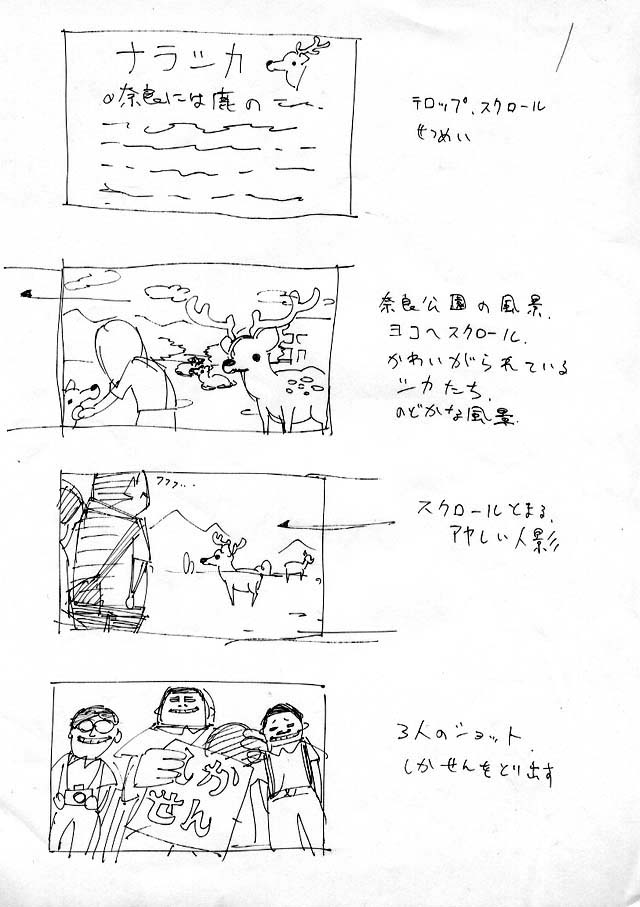 ナラシカ
○奈良には鹿の
テロップ、スクロール
せつめい
奈良公園の風景、
ヨコへスクロール、
かわいがられている
シカたち、
のどかな風景
フフフ・・・
スクロールとまる、
アヤしい人影
3人のショット、
しかせんをとり出す
しか
せん